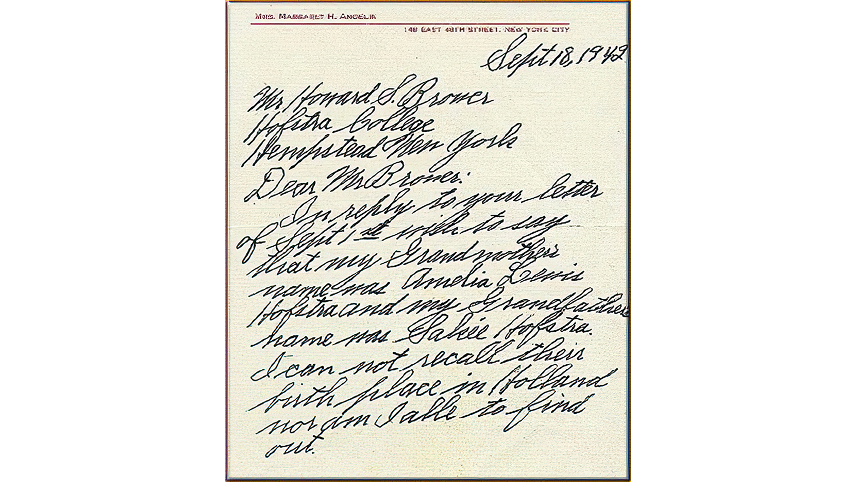 Mrs. Margaret H. Angelik
148 East 48th Street, New York City
Sept 18, 1942
Mr Howard S. Brower
Hofstra College
Hempstead New York
Dear Mr Brower:
In reply to your letter
of Sept 1st wish to say
that my Grandmothers
name was Amelia Lewis
Hofstra and my Grandfathers
name was Hofstra.
I can not recall their
birth place in Holland
nor am I able to find
out.